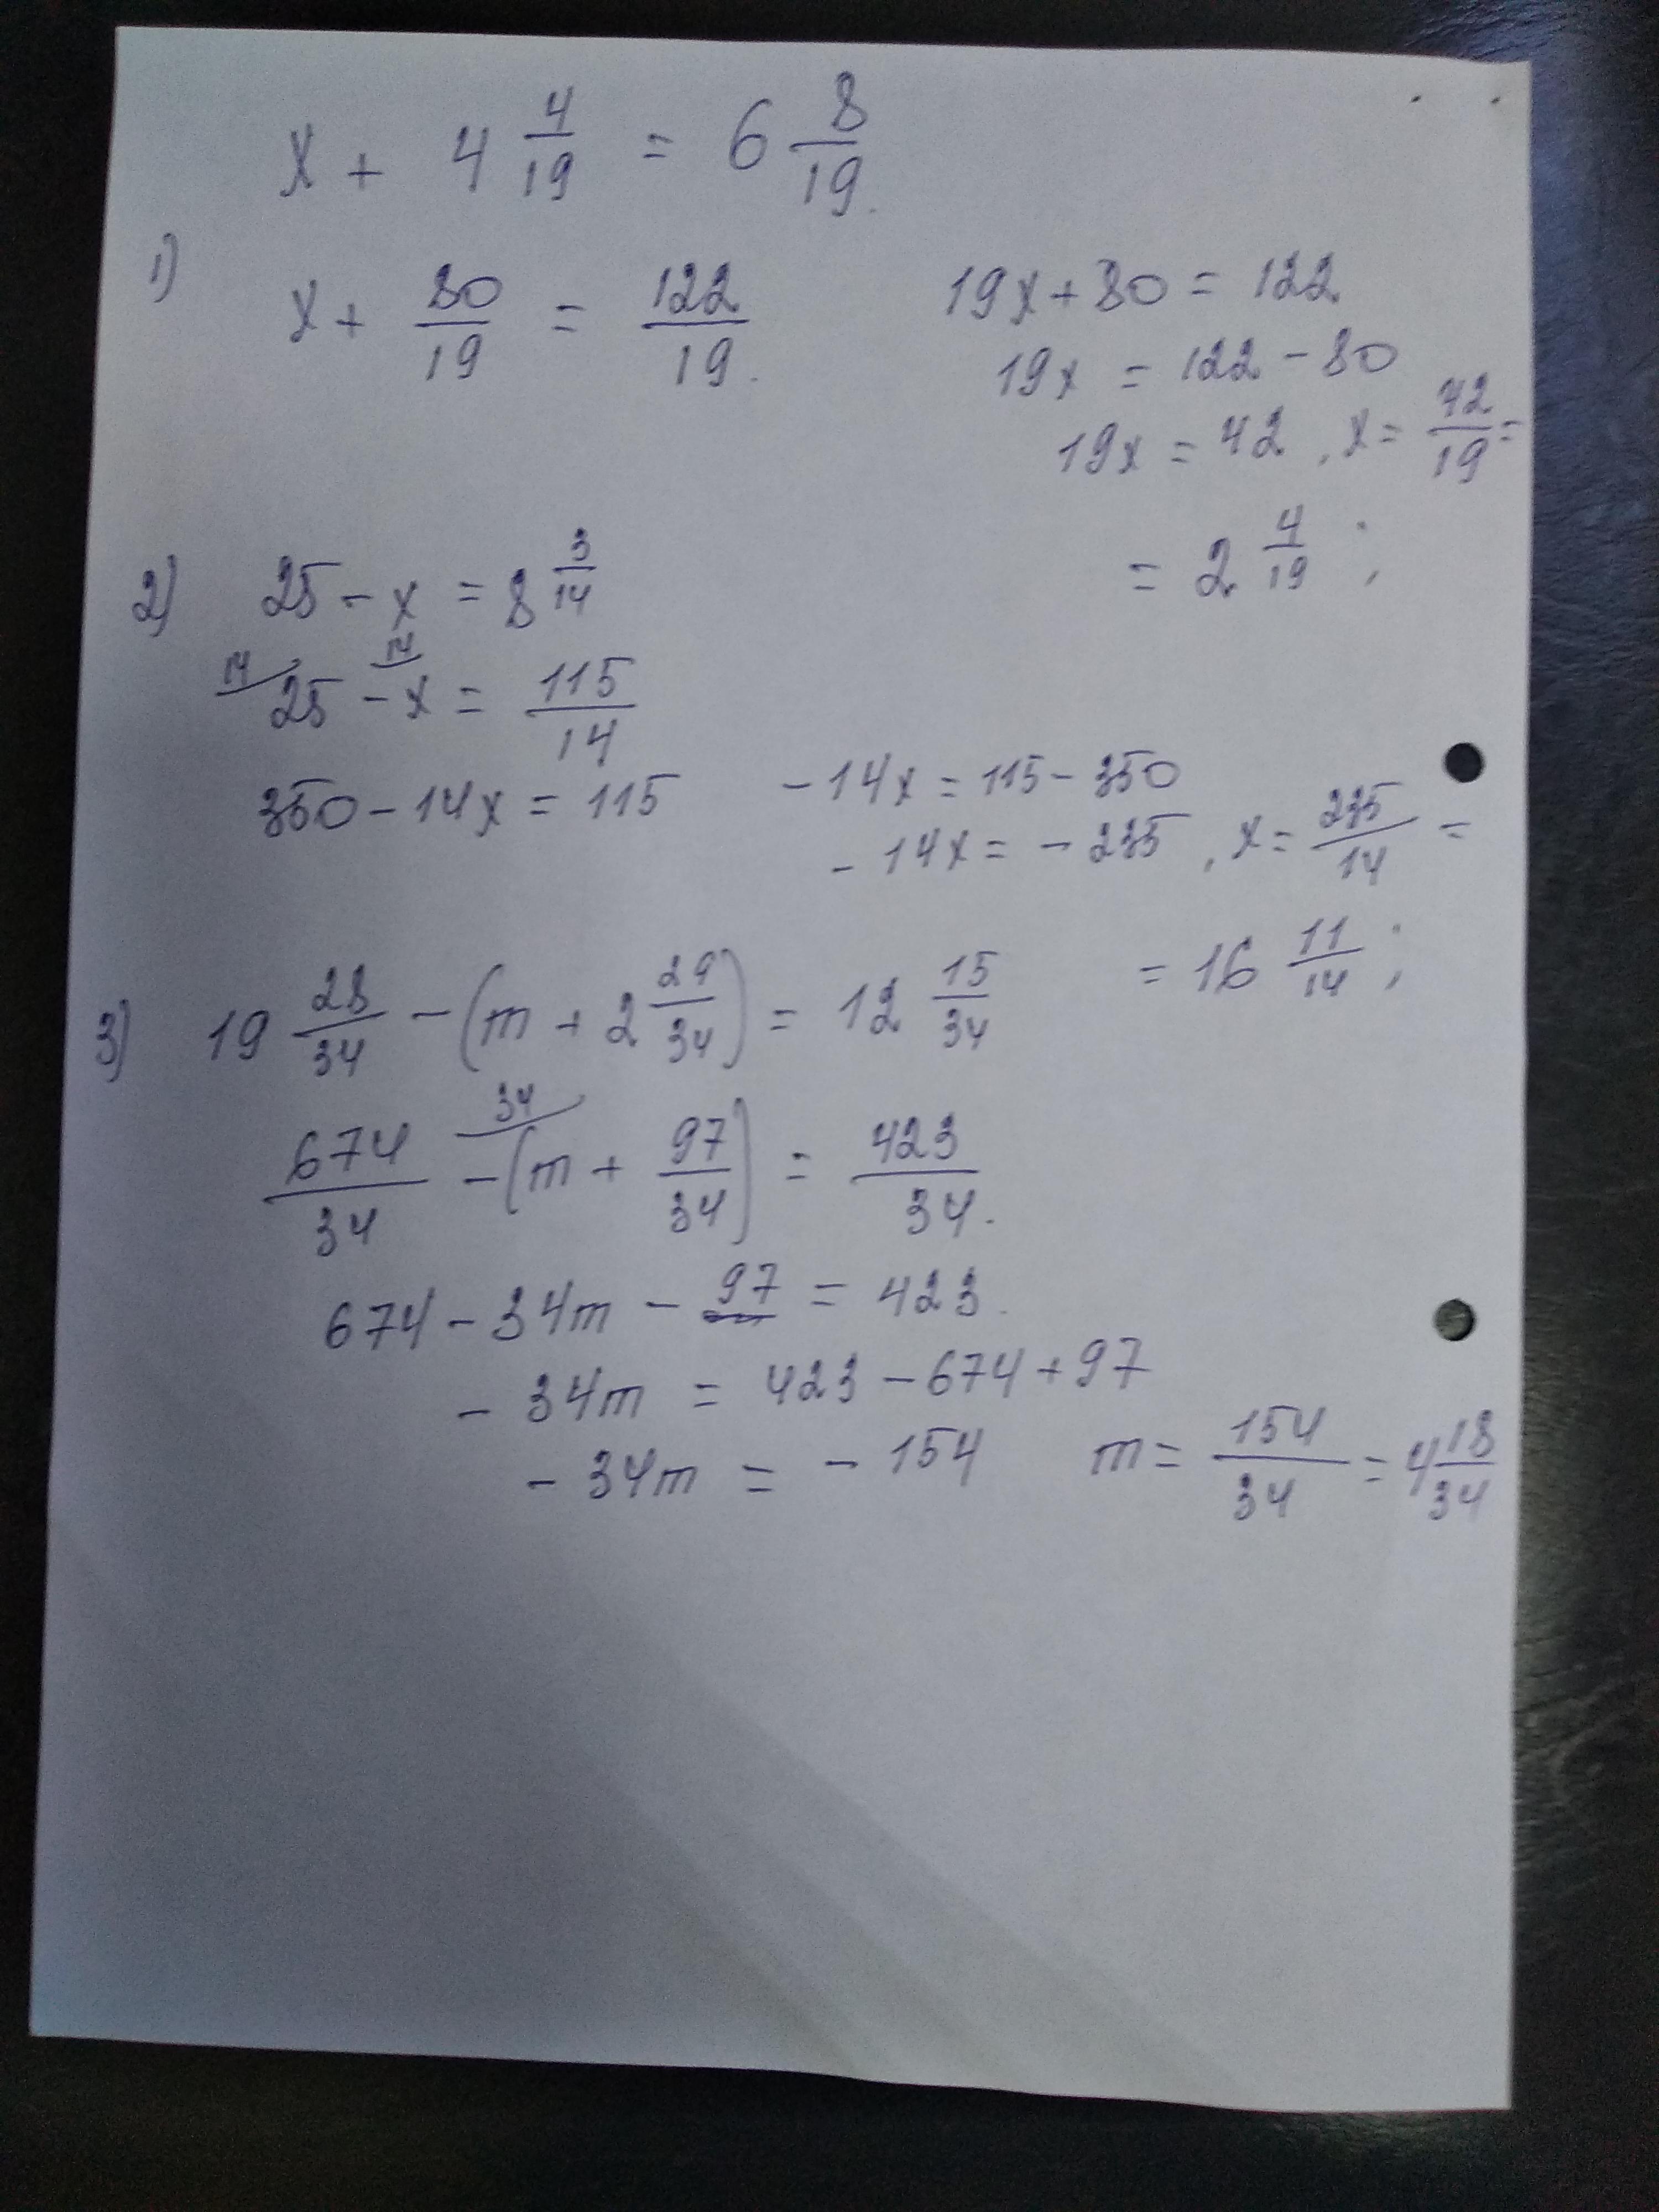 x + 4 4/19 = 6 8/19.
1) x + 80/19 = 122/19.
19x + 80 = 122
19x = 122 - 80
19x = 42, x = 42/19 =
= 2 4/19;
2) 25 - x = 8 3/14
14/ 25 - 14/ x = 115/14
350 - 14x = 115
-14x = 115 - 350
-14x = -235, x = 235/14 =
= 16 11/14;
3) 19 28/34 - (m + 2 29/34) = 12 15/34
674/34 - 34/ (m + 97/34) = 423/34.
674 - 34m - 97 = 423.
- 34m = 423 - 674 + 97
- 34m = - 154 m = 154/34 = 4 18/34